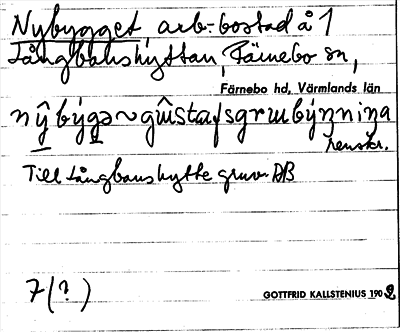 Nybygget, arb.-bostad å 1
Långbanshyttan, Färnebo sn,
Färnebo hd, Värmlands län
renskr.
Till Långbanshytte gruvor DB
7(?)
GOTTFRID KALLSTENIUS 1902